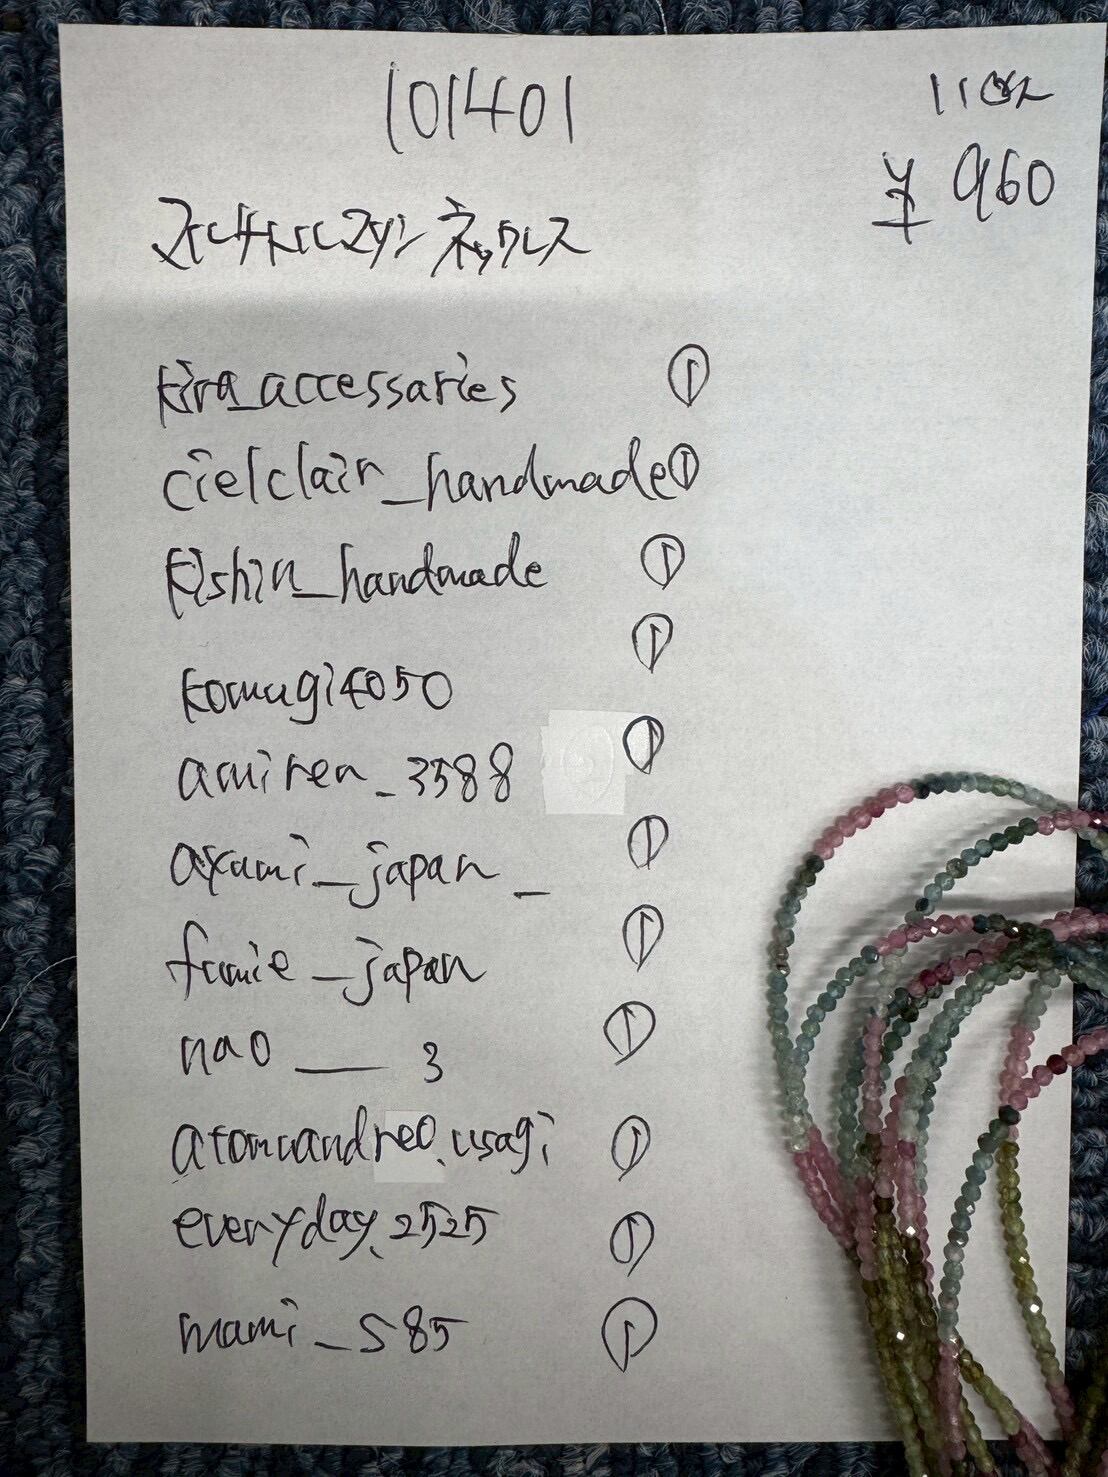 101401
11点
¥960
マルチトルマリン ネックレス
kira_accessaries ①
cielclair_handmade ①
kishin_handmade ①
komugi4050 ①
amiren_3588 ①
ayami_japan_ ①
fumie_japan ①
nao___3 ①
atomuandreo.usagi ①
everyday.2525 ①
mami_s85 ①